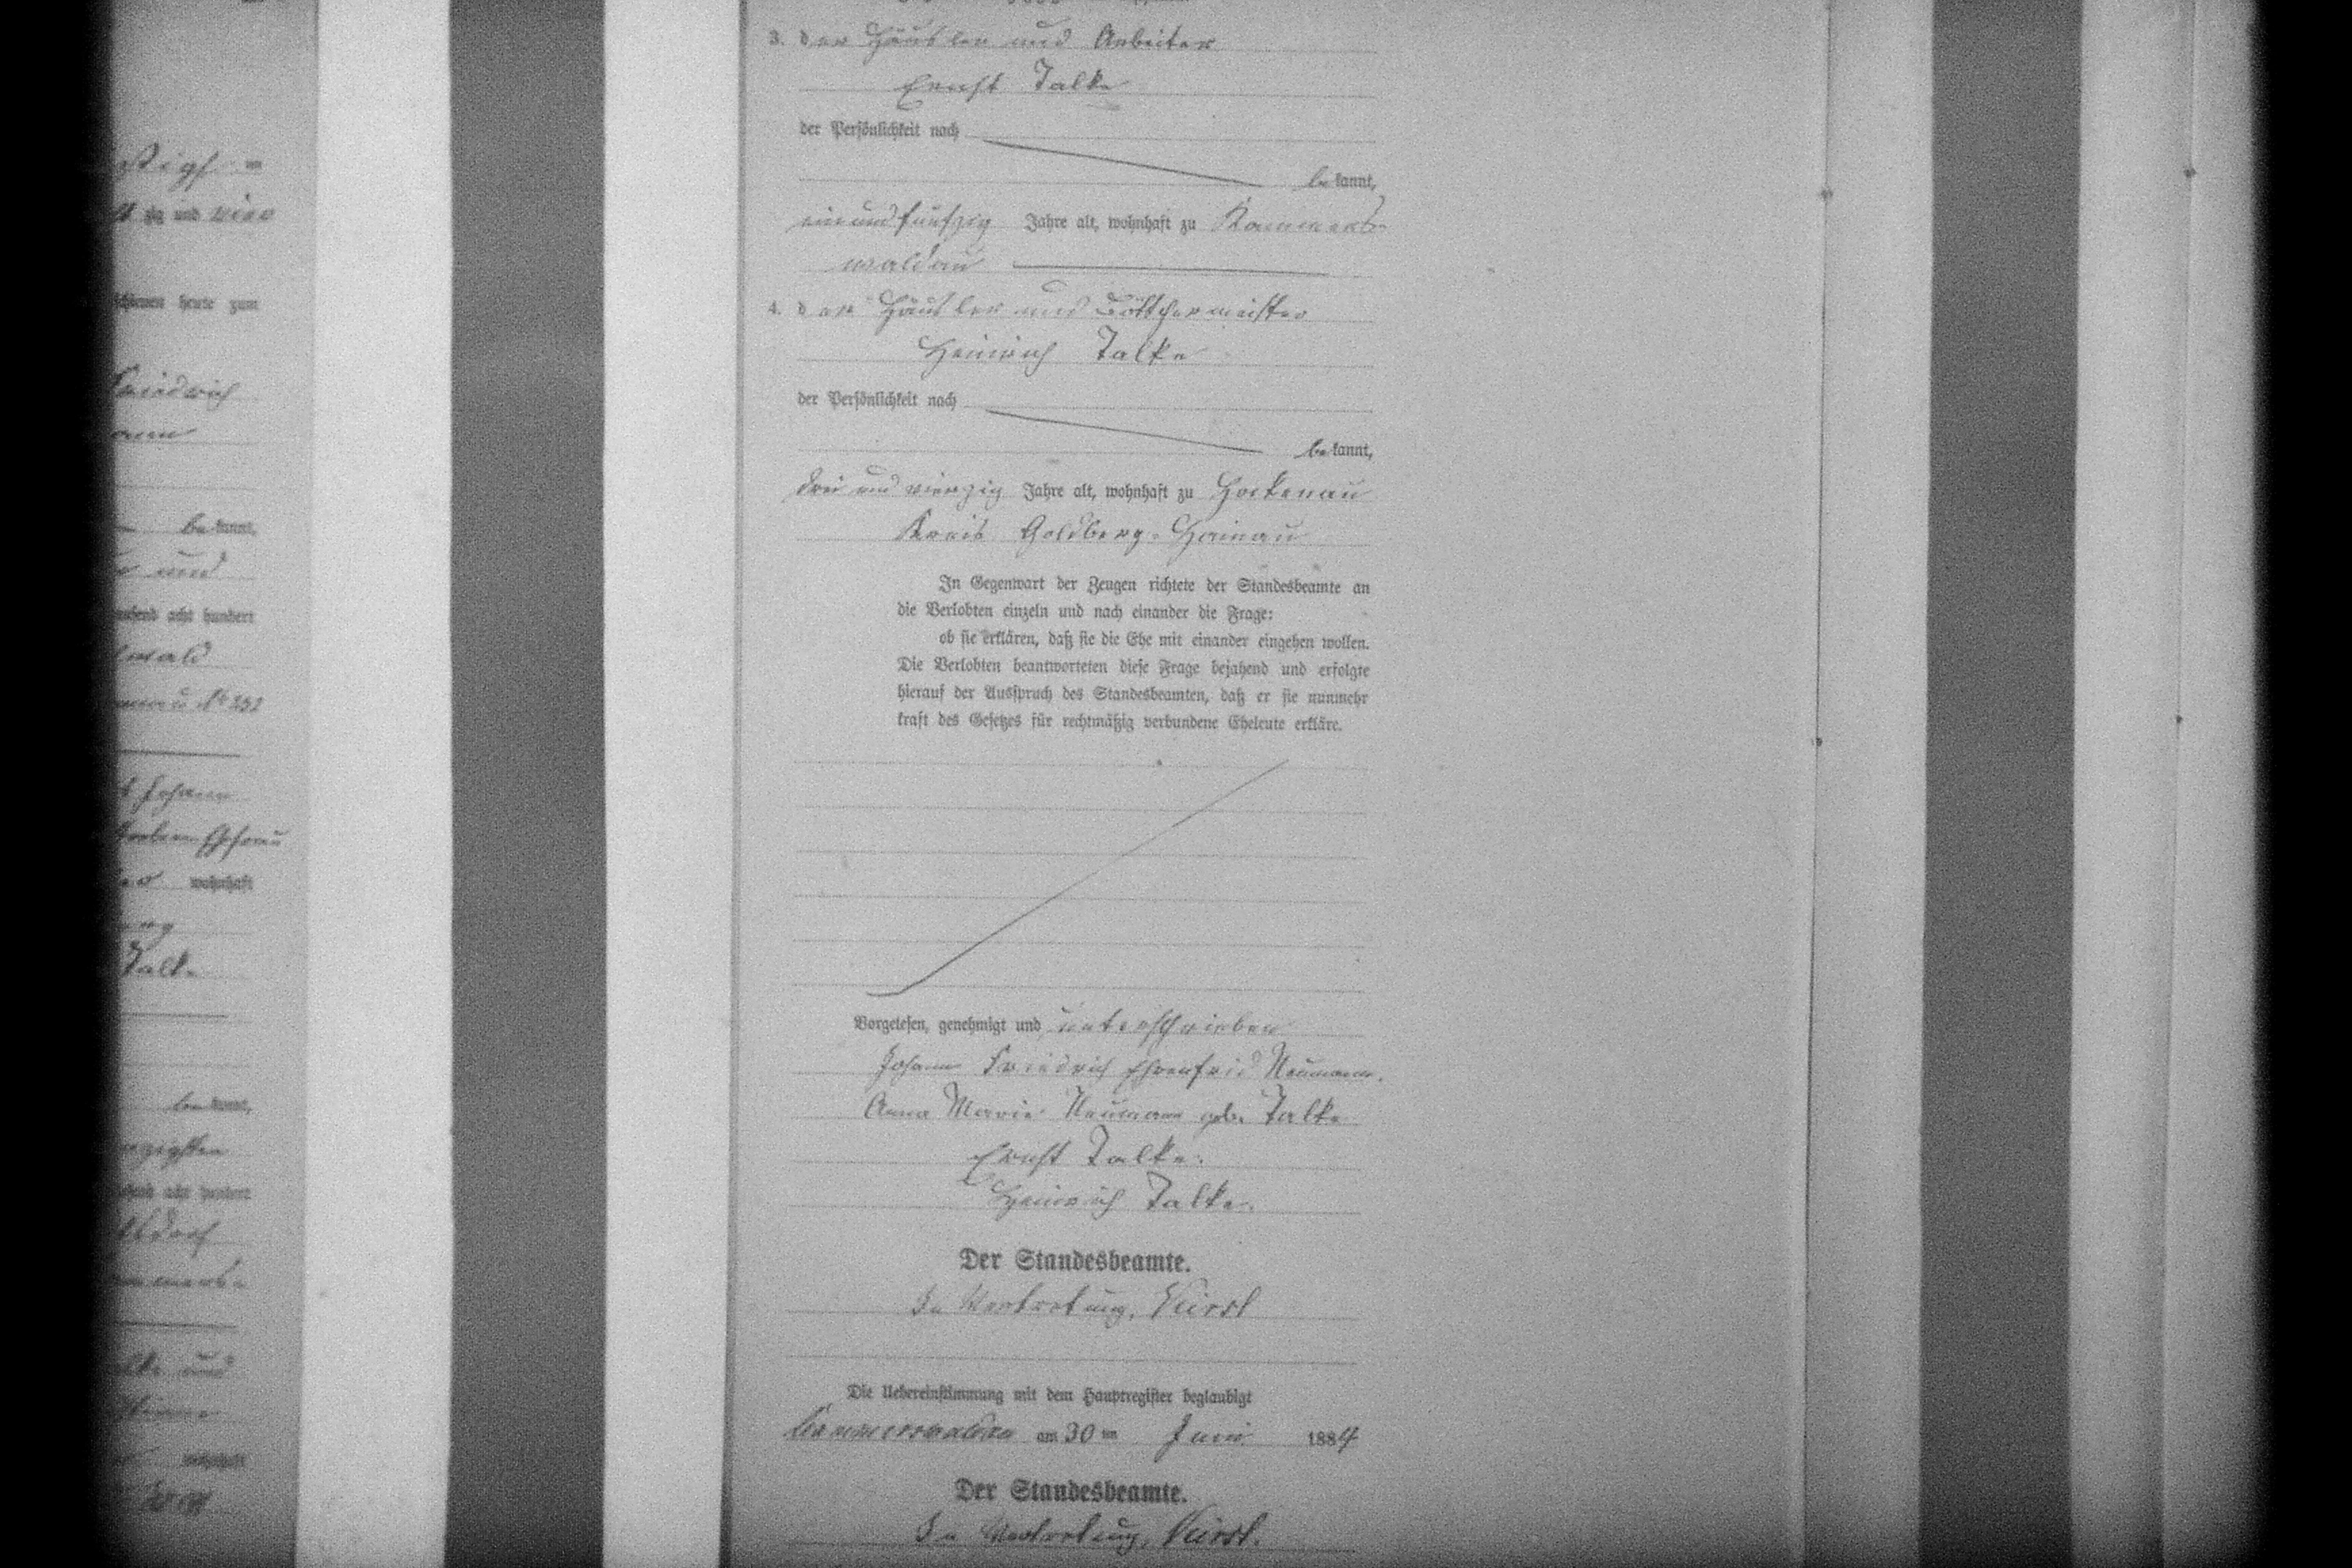 stigs =
ßig und vier
schienen heute zum
Friedrich
mann
be kannt,
und
tausend acht hundert
wald
No 252
Johann
wohnhaft
Talke
be kannt,
zigsten
tausend acht hundert
dorf
und
wohnhaft
3. der Häusler und Arbeiter
Ernst Talke
der Persönlichkeit nach
be kannt,
einundfünfzig Jahre alt, wohnhaft zu Kammers-
waldau
4. der Häusler und Böttchermeister
Heinrich Talke
der Persönlichkeit nach
be kannt,
drei und vierzig Jahre alt, wohnhaft zu Hockenau
Kreis Goldberg-Hainau
In Gegenwart der Zeugen richtete der Standesbeamte an
die Verlobten einzeln und nach einander die Frage:
ob sie erklären, daß sie die Ehe mit einander eingehen wollen.
Die Verlobten beantworteten diese Frage bejahend und erfolgte
hierauf der Ausspruch des Standesbeamten, daß er sie nunmehr
kraft des Gesetzes für rechtmäßig verbundene Eheleute erkläre.
Vorgelesen, genehmigt und unterschrieben
Johann Friedrich Ehrenfrid Neumann.
Anna Marie Neumann geb. Talke
Ernst Talke.
Heinrich Talke.
Der Standesbeamte.
In Vertretung,
Die Uebereinstimmung mit dem Hauptregister beglaubigt
Kammerswaldau am 30 ten Juni 1884
Der Standesbeamte.
In Vertretung,